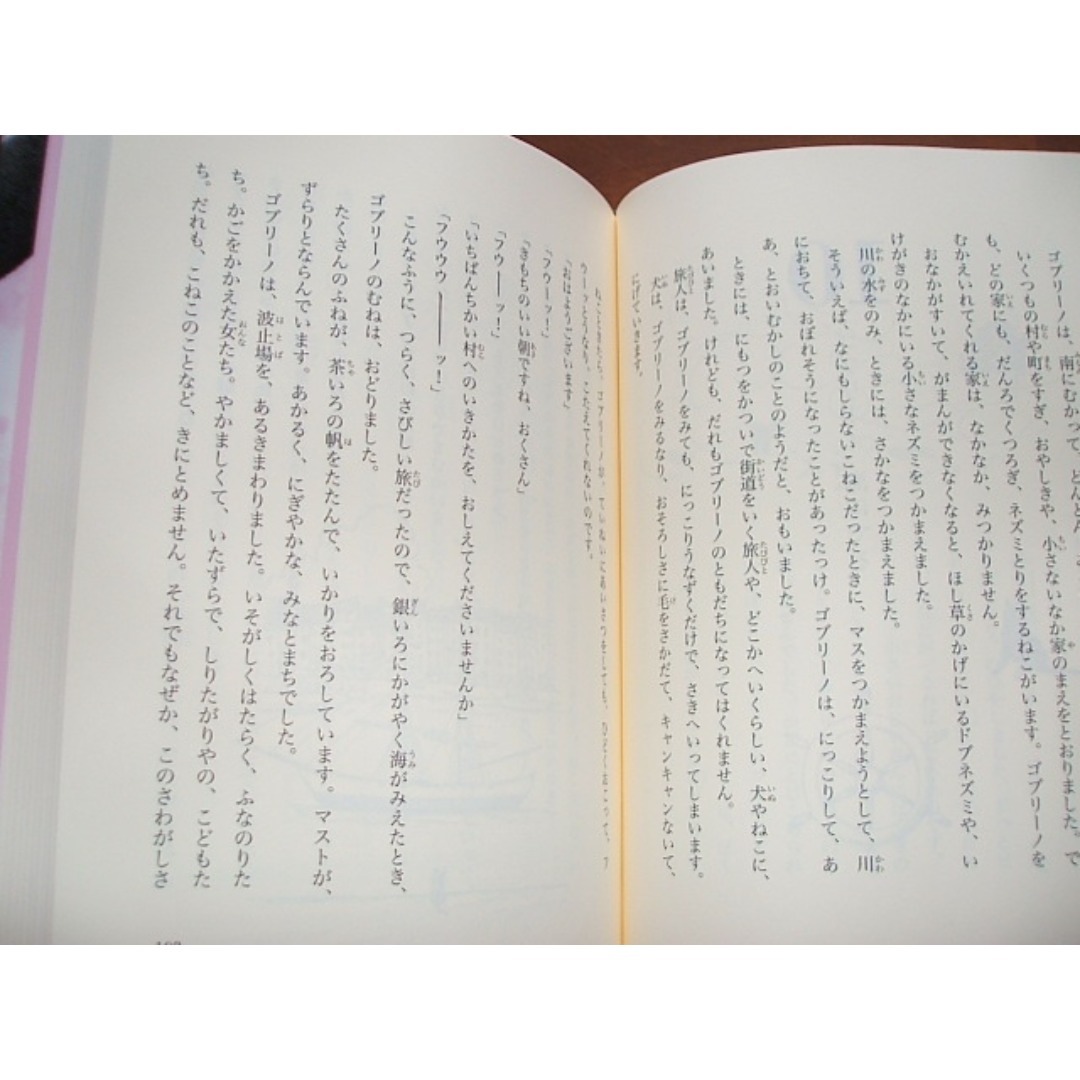 ゴブリーノは、南にむかって、どんどん
いくつもの村や町をすぎ、おやしきや、小さないなか家のまえをとおりました。で
も、どの家にも、だんろでくつろぎ、ネズミとりをするねこがいます。ゴブリーノを
むかえいれてくれる家は、なかなか、みつかりません。
おなかがすいて、がまんができなくなると、ほし草のかげにいるドブネズミや、い
けがきのなかにいる小さなネズミをつかまえました。
川の水をのみ、ときには、さかなをつかまえました。
そういえば、なにもしらないこねこだったときに、マスをつかまえようとして、川
におちて、おぼれそうになったことがあったっけ。ゴブリーノは、にっこりして、あ
あ、とおいむかしのことのようだと、おもいました。
ときには、にもつをかついで街道をいく旅人や、どこかへいくらしい、犬やねこに、
あいました。けれども、だれもゴブリーノのともだちになってはくれません。
旅人は、ゴブリーノをみても、にっこりうなずくだけで、さきへいってしまいます。
犬は、ゴブリーノをみるなり、おそろしさに毛をさかだて、キャンキャンないて、
にげていきます。
ねこときたら、ゴブリーノが、ていねいにあいさつをしても、ひどくおこって、フ
ウーッとうなり、こたえてくれないのです。
「おはようございます」
「フゥーッ！」
「きもちのいい朝ですね、おくさん」
「フウーーッ！」
「いちばんちかい村へのいきかたを、おしえてくださいませんか」
「フウウウ────ッ！」
こんなふうに、つらく、さびしい旅だったので、銀いろにかがやく海がみえたとき、
ゴブリーノのむねは、おどりました。
たくさんのふねが、茶いろの帆をたたんで、いかりをおろしています。マストが、
ずらりとならんでいます。あかるく、にぎやかな、みなとまちでした。
ゴブリーノは、波止場を、あるきまわりました。いそがしくはたらく、ふなのりた
ち。かごをかかえた女たち。やかましくて、いたずらで、しりたがりやの、こどもた
ち。だれも、こねこのことなど、きにとめません。それでもなぜか、このさわがしさ